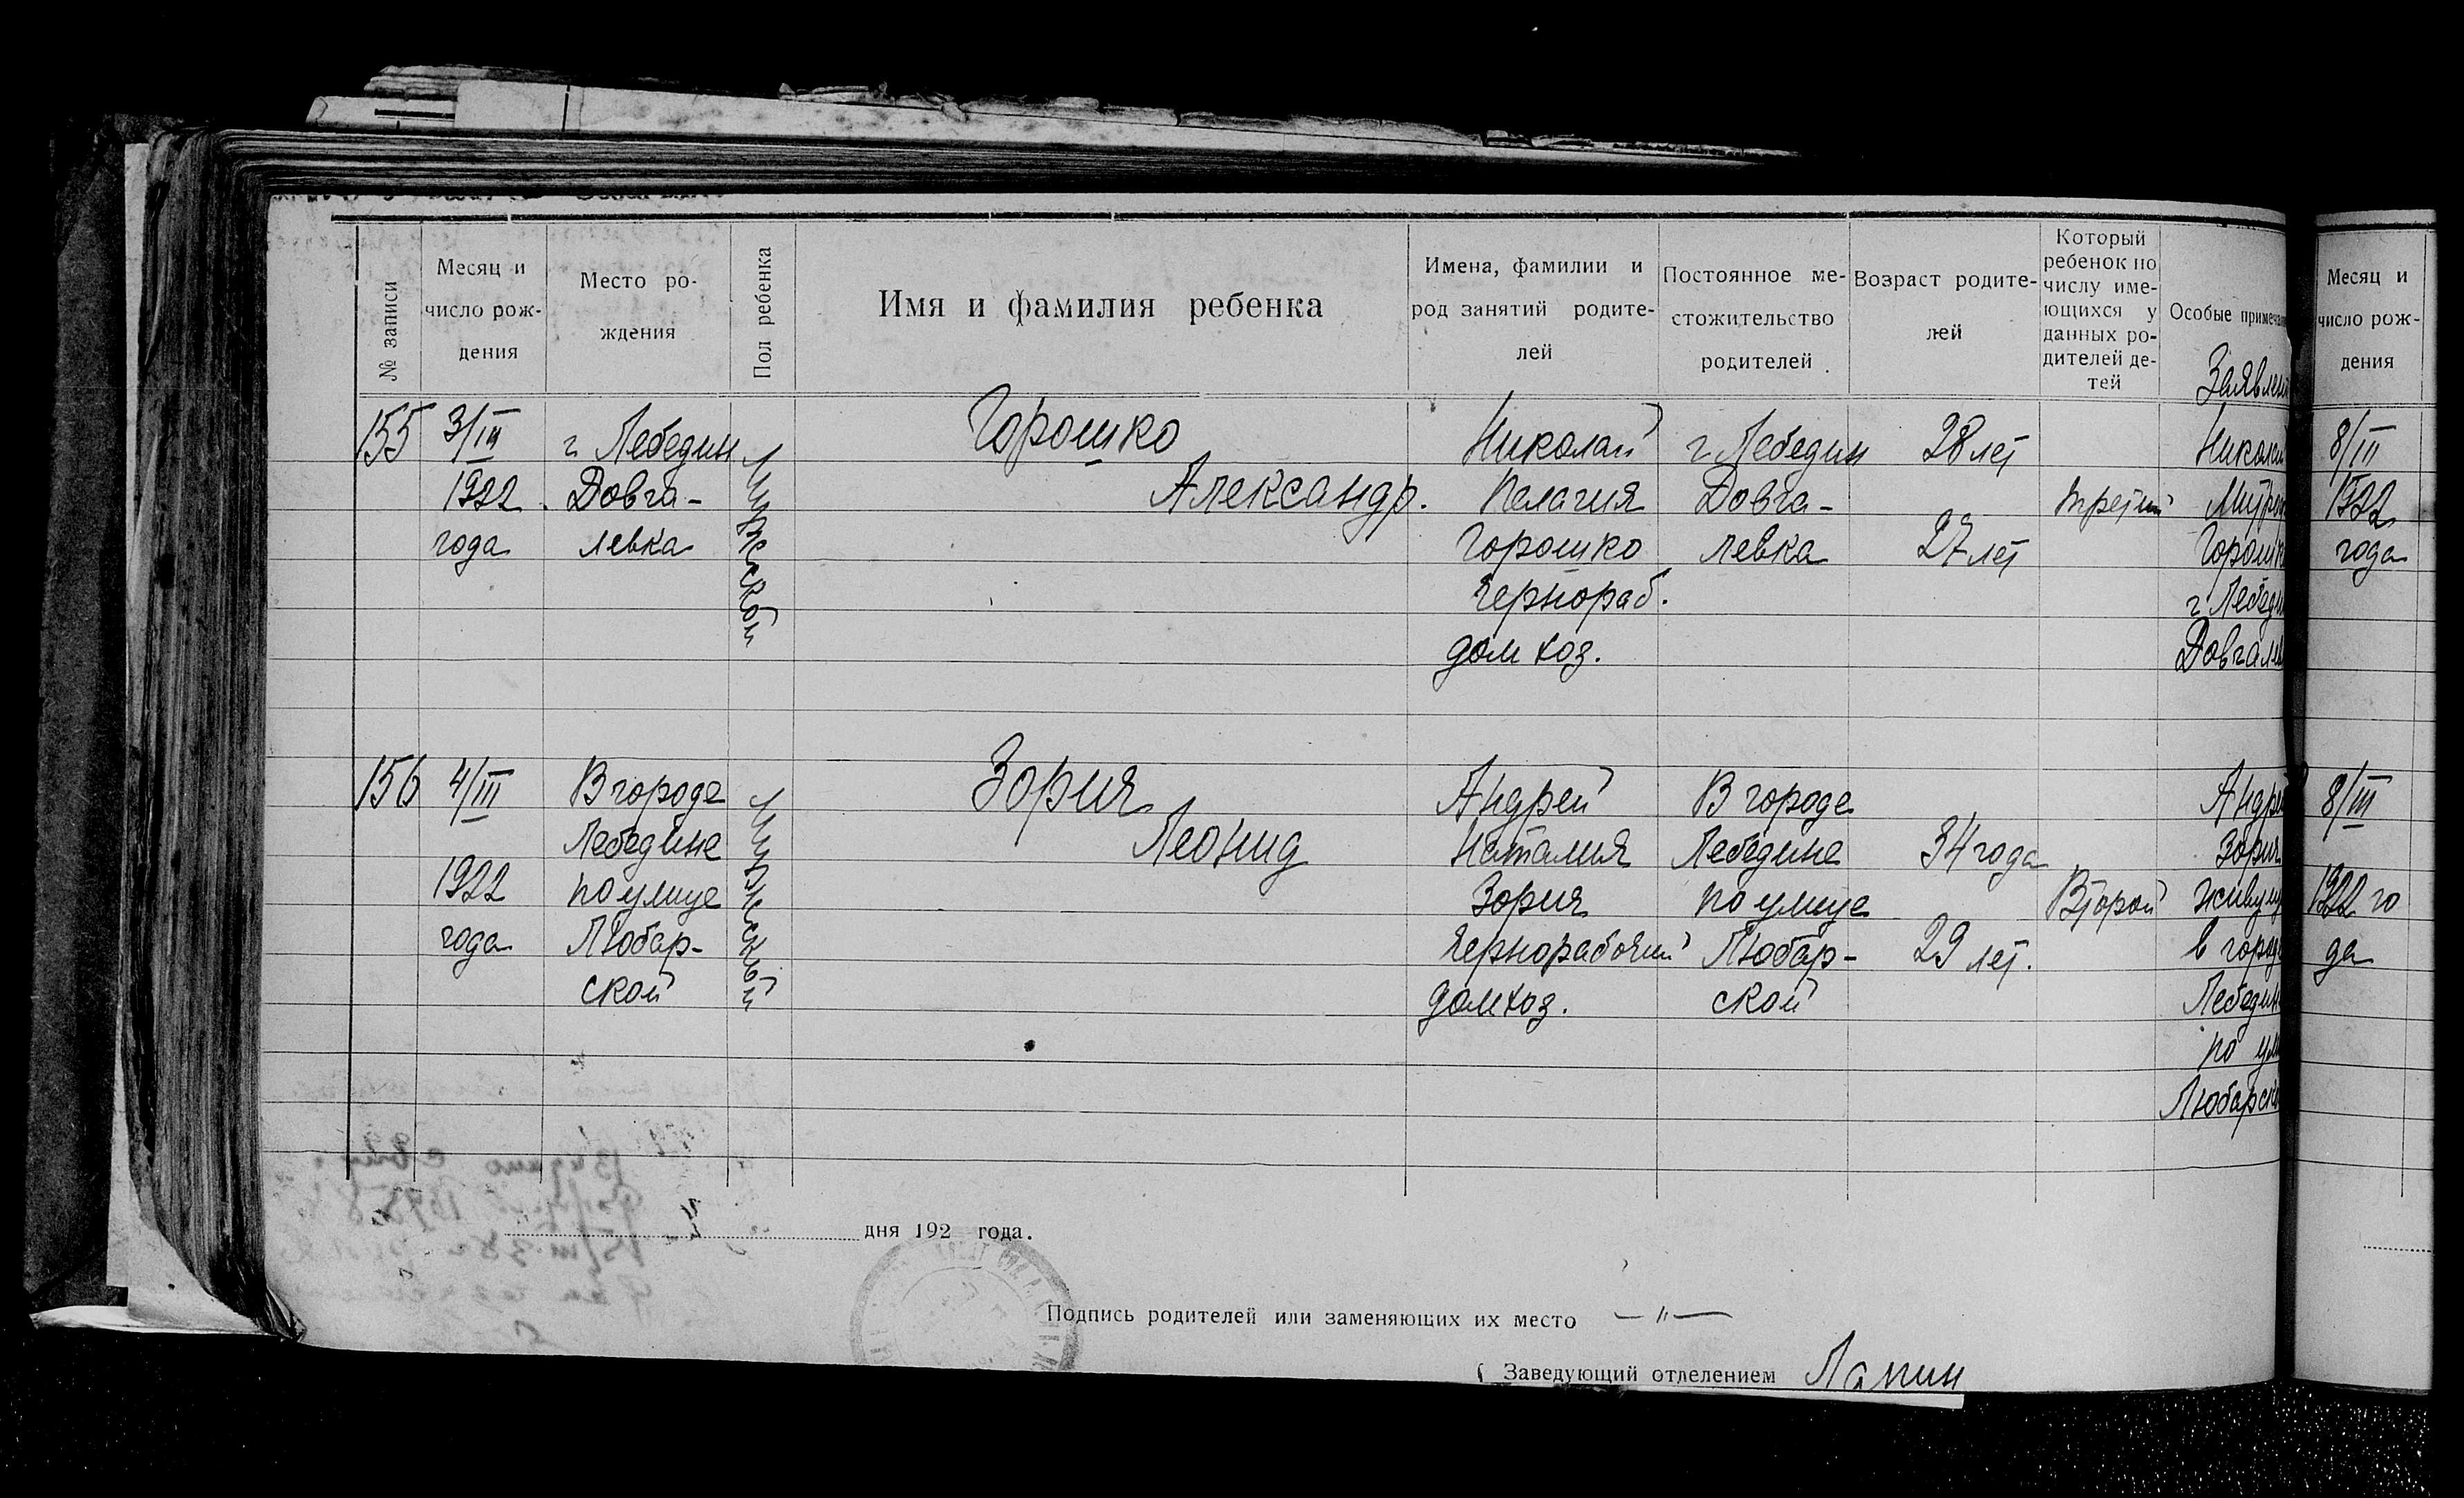 № записи
Месяц и
число рож-
дения
Место ро-
ждения
Пол ребенка
Имя и фамилия ребенка
Имена, фамилии и
род занятий родите-
лей
Постоянное ме-
стожительство
родителей
Возраст родите-
лей
Который
ребенок по
числу име-
ющихся у
данных ро-
дителей де-
тей
Особые примеча
Заявлен
155
3/III
1922
года
г Лебедин
Довга-
левка
Мужской
Горошко
Александр.
Николай
Пелагия
Горошко
чернораб.
дом хоз.
г Лебедин
Довга-
левка
28 лет
27 лет
третий
Николай
Митро
Горошк
г Лебеди
Довгалев
156
4/III
1922
года
В городе
Лебедине
по улице
Любар-
ской
Мужской
Зория
Леонид
Андрей
Наталия
Зория
чернорабочий
домхоз.
В городе
Лебедине
по улице
Любар-
ской
34 года
29 лет.
Второй
Андрей
Зория
в городе
Лебедин
по ул
Любарско
дня 192 года.
Подпись родителей или заменяющих их место — " —
Заведующий отделением Лапин
Месяц и
число рож-
дения
8/III
1922
года
8/III
1922 го
да